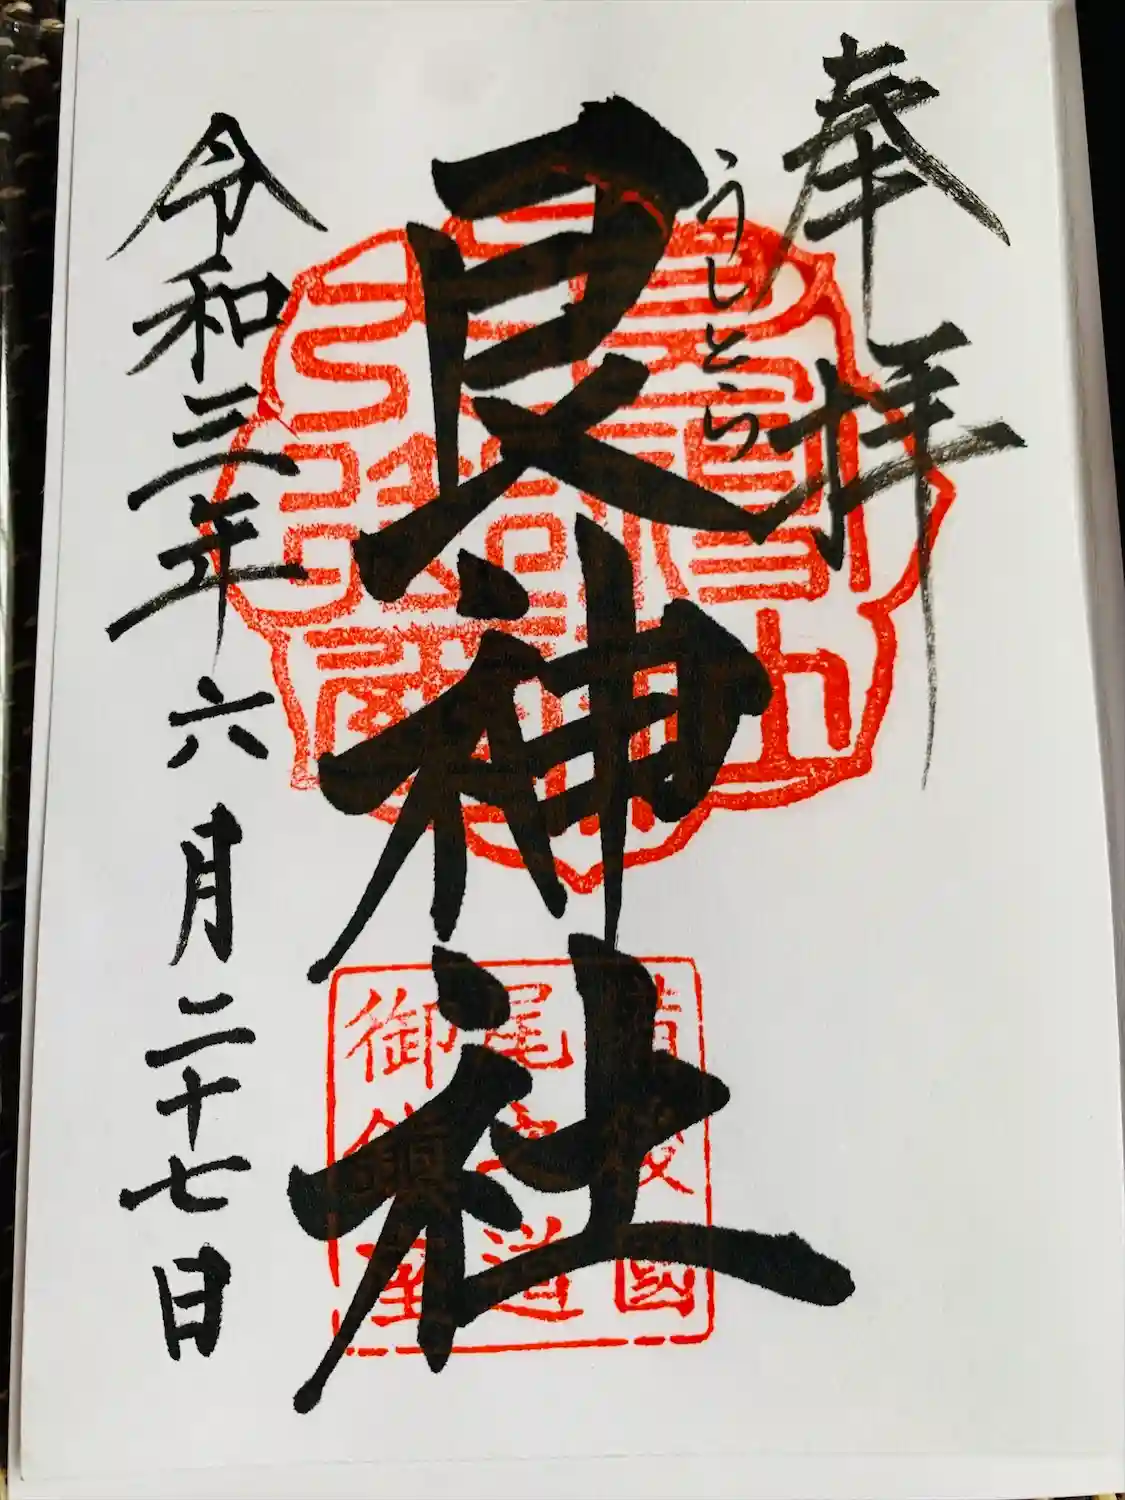 奉拝
うしとら
艮神社
令和三年六月二十七日
備後國
尾之道
御鎮座